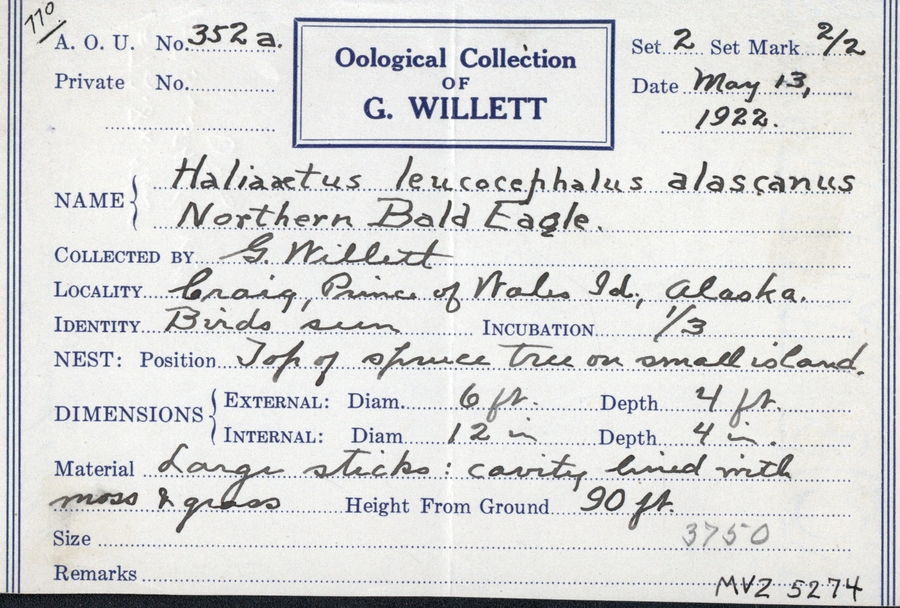 770
A. O. U. No. 352 a.
Oological Collection
OF
G. WILLETT
Set 2 Set Mark 2/2
Private No.
Date May 13,
1922.
NAME { Haliaaetus leucocephalus alascanus
Northern Bald Eagle.
COLLECTED BY G. Willett
LOCALITY Craig, Prince of Wales Id., Alaska.
IDENTITY Birds seen INCUBATION 1/3
NEST: Position Top of spruce tree on small island.
DIMENSIONS { EXTERNAL: Diam. 6 ft. Depth 4 ft.
INTERNAL: Diam 12 in Depth 4 in.
Material Large sticks: cavity lined with
moss & grass Height From Ground 90 ft.
Size 3750
Remarks MVZ 5274